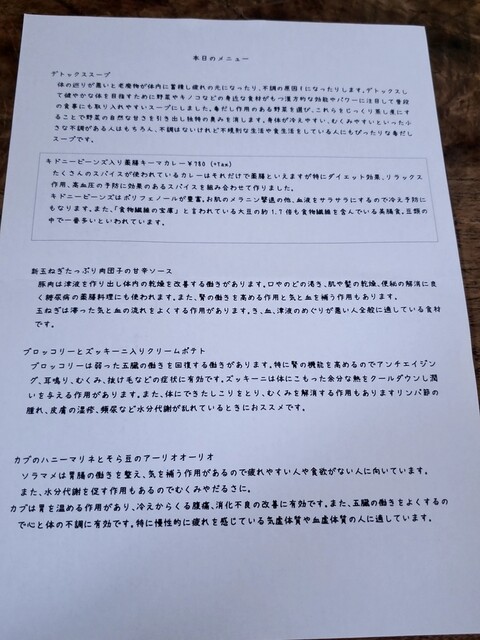 本日のメニュー
デトックススープ
体の巡りが悪いと老廃物が体内に蓄積し疲れの元になったり、不調の原因になったりします。デトックスし
て健やかな体を目指すために野菜やキノコなどの身近な食材がもつ漢方的な効能やパワーに注目して普段
の食事にも取り入れやすいスープにしました。毒だし作用のある野菜を選び、これらをじっくり蒸し煮にす
ることで野菜の自然な甘さを引き出し独特の臭みを消します。身体が冷えやすい、むくみやすいといった小
さな不調がある人はもちろん、不調はないけれど不規則な生活や食生活をしている人にもぴったりな毒だし
スープです。
キドニービーンズ入り薬膳キーマカレー￥780（+tax）
たくさんのスパイスが使われているカレーはそれだけで薬膳といえますが特にダイエット効果、リラックス
作用、高血圧の予防に効果のあるスパイスを組み合わせて作りました。
キドニービーンズはポリフェノールが豊富。お肌のメラニン撃退の他、血液をサラサラにするので冷え予防に
もなります。また、「食物繊維の宝庫」と言われている大豆の約1.7倍も食物繊維を含んでいる美腸食。豆類の
中で一番多いといわれています。
新玉ねぎたっぷり肉団子の甘辛ソース
豚肉は津液を作り出し体内の乾燥を改善する働きがあります。口やのどの渇き、肌や髪の乾燥、便秘の解消に良
く糖尿病の薬膳料理にも使われます。また、腎の働きを高める作用と気と血を補う作用もあります。
玉ねぎは滞った気と血の流れをよくする作用があります。き、血、津液のめぐりが悪い人全般に適している食材
です。
ブロッコリーとズッキーニ入りクリームポテト
ブロッコリーは弱った五臓の働きを回復する働きがあります。特に腎の機能を高めるのでアンチエイジン
グ、耳鳴り、むくみ、抜け毛などの症状に有効です。ズッキーニは体にこもった余分な熱をクールダウンし潤
いを与える作用があります。また、体にできたしこりをとり、むくみを解消する作用もありますリンパ節の
腫れ、皮膚の湿疹、頻尿など水分代謝が乱れているときにおススメです。
カブのハニーマリネとそら豆のアーリオオーリオ
ソラマメは胃腸の働きを整え、気を補う作用があるので疲れやすい人や食欲がない人に向いています。
また、水分代謝を促す作用もあるのでむくみやだるさに。
カブは胃を温める作用があり、冷えからくる腹痛、消化不良の改善に有効です。また、五臓の働きをよくするの
で心と体の不調に有効です。特に慢性的に疲れを感じている気虚体質や血虚体質の人に適しています。